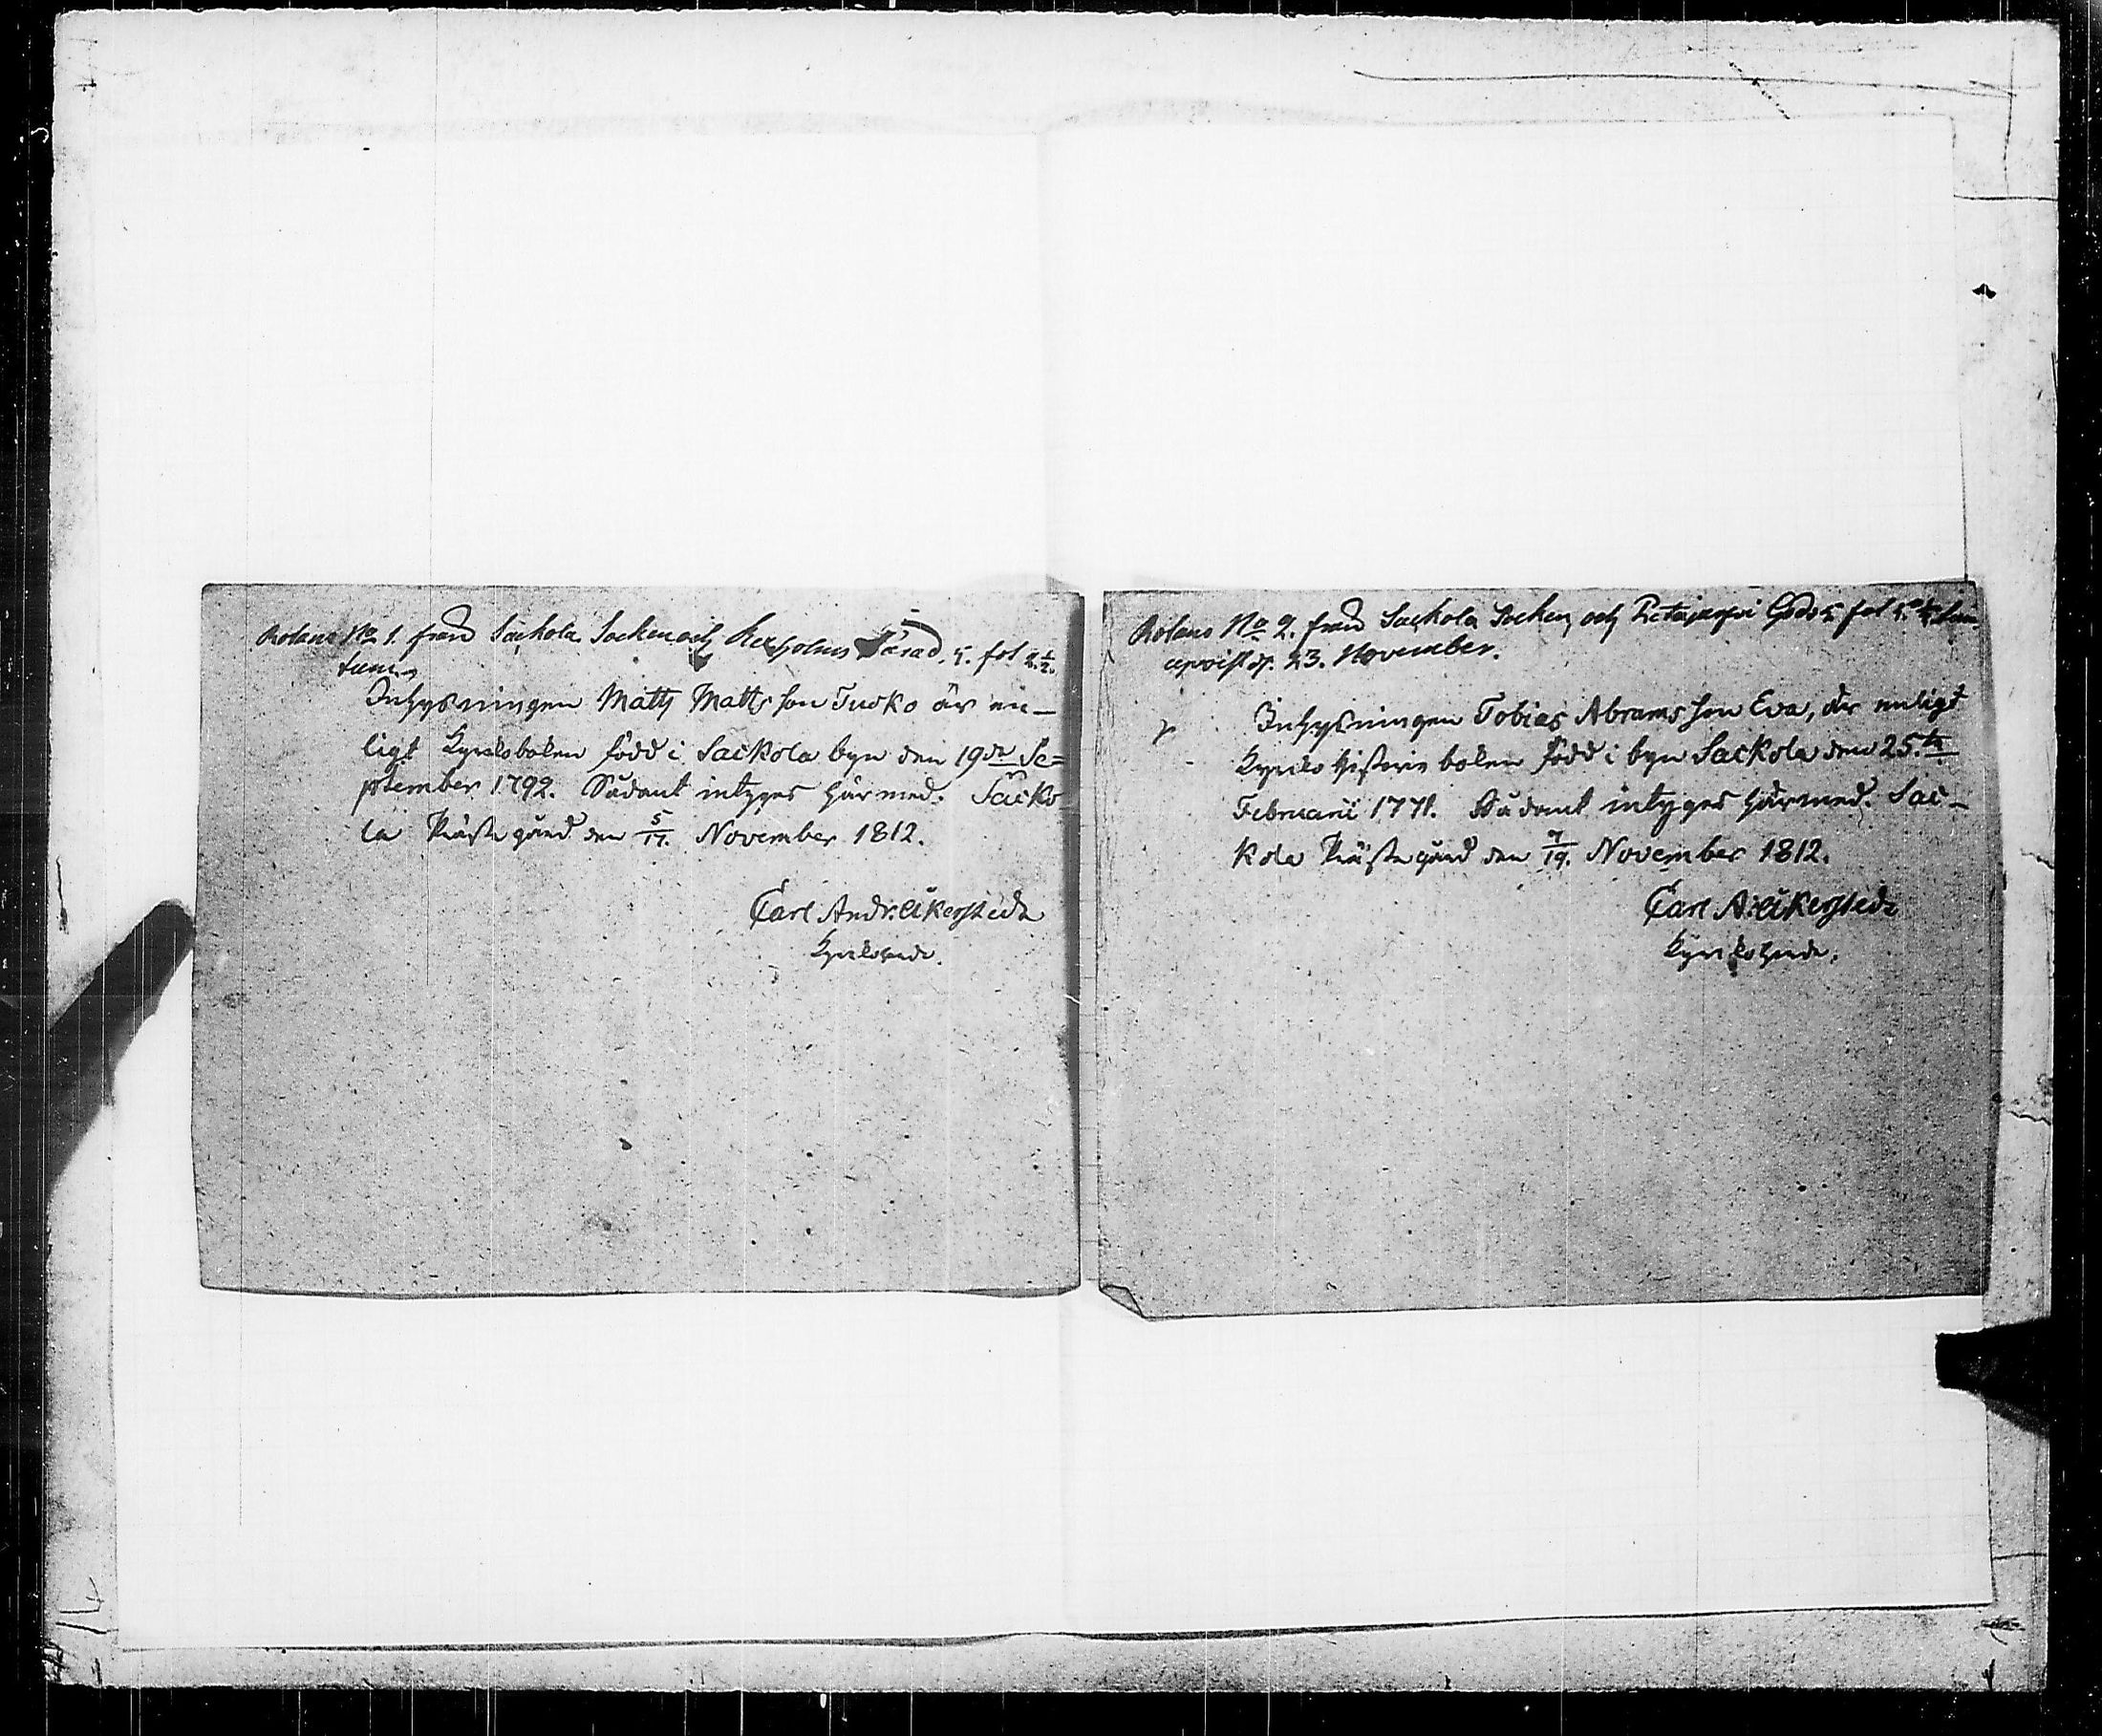 Rotans No 1. från Säckola Socken och Kexholms Härad, 5. fot 2 1/2
tum.
Inhysningen Matts Mattsson Tusko är en-
ligt Kyrkoboken född i Sackola byn den 19de Se=
ptember 1792. Sådant intyges härmed. Sacko
la Prästegård den 5/17. November 1812.
Carl Andr. Åkerstedt
Kyrkoherde.
Rotans No 2. från Sackola Socken och Petäjärfvi Gods 5 fot
d. 23. November.
Inhysningen Tobias Abramsson Eva, är enligt
Kyrko Historie boken född i byn Sackola den 25.te
Februarii 1771. Sådant intyges härmed. Sac-
kola Prästegård den 7/19. November 1812.
Carl A: Åkerstedt
Kyrkoherde.